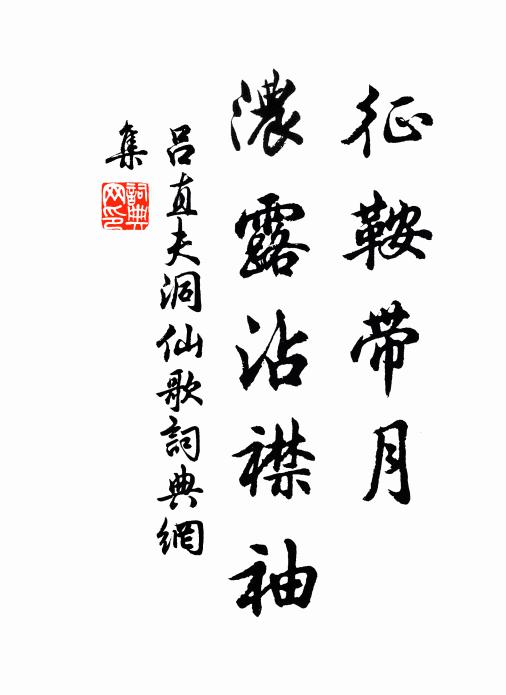 征鞍带月
濃露沾襟袖
吕直夫洞仙歌詞典網
集
詞典
网印